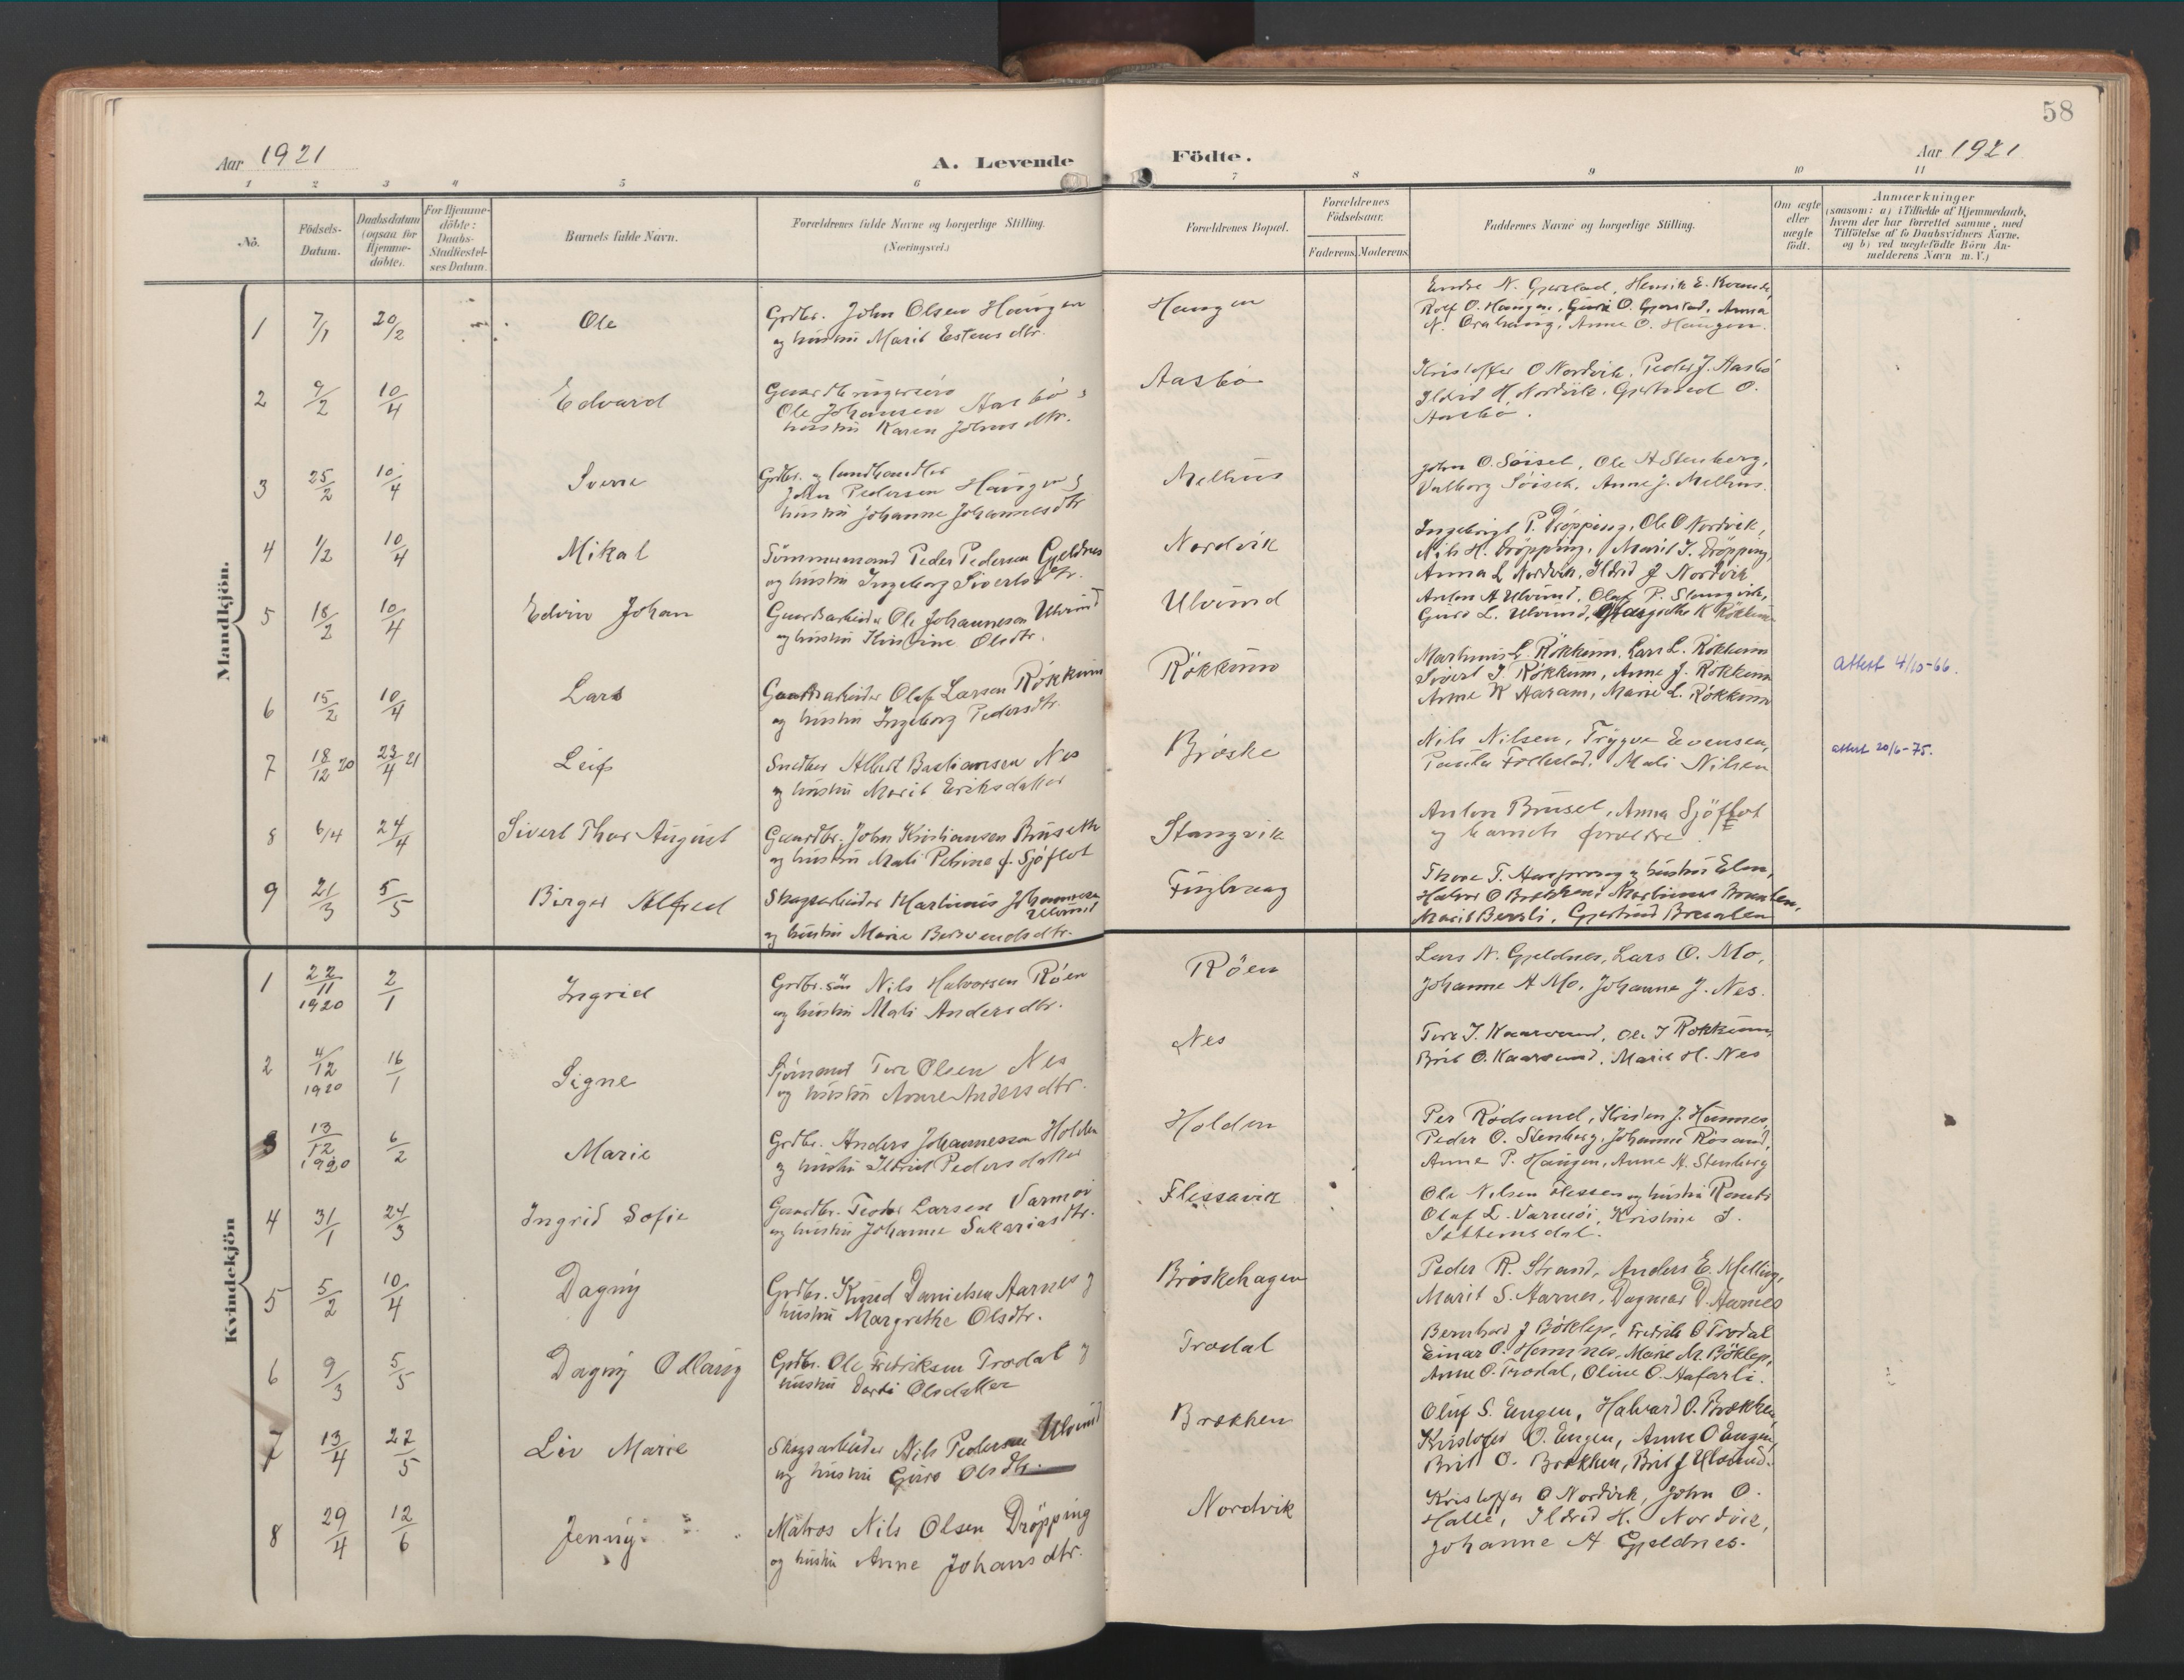 58
Aar 1921
A. Levende Födte.
Aar 1921
1 2 3 4 5 6 7 8 9 10 11
No.
Födsels-Datum.
Daabsdatum (ogsaa for Hjemme-döbte).
For Hjemme-döbte: Daabs-Stadfæstel-ses Datum.
Barnets fulde Navn.
Forældrenes fulde Navne og borgerlige Stilling.
(Næringsvei.)
Forældrenes Bopæl.
Forældrenes Födselsaar.
Faderens. Moderens.
Faddernes Navne og borgerlige Stilling.
Om ægte eller uægte født.
Anmærkninger
(saasom: a) i Tilfælde af Hjemmedaab,
hvem der har forrettet samme, med
Tilföielse af to Daabsvidners Navne,
og b) ved uægtefödte Börn An-
melderens Navn m. V.)
Mandkjön.
1 7/1 20/2 Ole
Grdbr. John Olsen Haugen
og hustru Marit Estensdtr.
Haugen
Endre N. Gjerstad, Henrik E.
Rolf O. Haugen, Guri O. Gjerstad, Anna
N. Anne O. Haugen.
2 9/2 10/4 Edvard
Ole Johansen Aasbö
hustru Karen Johnsdtr.
Aasbö
Kristoffer O Nordvik, Peder J. Aasbö
Ildrid H. Nordvik, Gjertrued O.
Aasbö.
3 25/2 10/4 Sverre
Grdbr. og landhandler
John Pedersen Haugen &
hustru Johanne Johannesdtr
Melhus
John O. Söisel, Ole A Stenberg,
Valborg Söisel, Anne J. Melhus.
4 1/2 10/4 Mikal
Tömmermand Peder Pedersen Gjeldnes
og hustru Ingeborg Sivertsdtr.
Nordvik
Ingebrigt P. Dröpping, Ole O Nordvik,
Nils H. Dröpping, Marit I. Dröpping,
Anna L Nordvik, Ildrid J Nordvik
5 18/2 10/4 Edvin Johan
Gaardsarbeider Ole Johannesen Ulvund
og hustru Kristine Olsdtr.
Ulvund
Anton A Ulvund, Olaf P. Stangvik,
Guro L. Ulvund, Margrethe K Rökkum
6 15/2 10/4 Lars
Gaardsarbeider Olaf Larsen Rökkum
og hustru Ingeborg Pedersdtr.
Rökkum
Martinus L. Rökkum, Lars L. Rökkum
Sivert J. Rökkum, Anne J. Rökkum
Anne K Aaram, Marie L. Rökkum
Attest 4/10-66.
7 18/12 20 23/4 21 Leif
Snedker Albert Bastiansen Nes
og hustru Marit Eriksdatter
Bröske
Nils Nilsen, Trygve Evensen,
Mali Nilsen
attest 20/6-75.
8 6/4 24/4 Sivert Thor August
Gaardbr. John Kristiansen Bruseth
og hustru Mali Petrine f. Sjöflot
Stangvik
Anton Brusel, Anna Sjöflot
og barnets forældre.
9 21/3 5/5 Birger Alfred
Skogsarbeider Martinus Johannesen
Ulvund
og hustru Marie Berwendsdtr.
Fuglvaag
Marit Beverli, Gjertrud Brualen
Kvindekjön
1 22/11 1920 2/1 Ingrid
Grdbr. sön Nils Halvorsen Röen
og hustru Mali Andersdtr.
Röen
Lars N. Gjeldnes, Lars O. Mo,
Johanne A Mo, Johanna J. Nes.
2 4/12 1920 16/1 Signe
Sjömand Tore Olsen Nes
og hustru Anne Andersdtr.
Nes
Tore J. Kaarvand, Ole J Rökkum,
Brit O. Kaarvand, Marit H. Nes
3 13/12 1920 6/2 Marie
Grdbr. Anders Johannessen Holden
og hustru Ildrid Pedersdatter
Holden
Per Rödsand, Kristen J. Hamnes,
Peder O. Stenberg, Johanne Rösand,
Anne P. Haugen, Anne A. Stenberg
4 31/1 24/3 Ingrid Sofie
Gaardbr. Teodor Larsen Varmöi
og hustru Johanne Sakariasdtr.
Flessavik
Ole Nilsen Flessen og hustru
Olaf L. Varmöi, Kristine I.
Settemsdal.
5 5/2 10/4 Dagny
Grdbr. Knud Danielsen Aarnes og
hustru Margrethe Olsdtr.
Bröskehagen
Peder R. Strand, Anders E. Melling,
Marit S. Aarnes, Dagmar D. Aarnes
6 9/3 5/5 Dagny Odlaug
Grdbr. Ole Fredriksen Trodal og
hustru Dordi Olsdatter
Trodal
Bernhard J Böklep, Fredrik O Trodal
Einar O. Hamnes, Marie M. Böklep,
Anne O. Trodal, Oline O. Aafarli.
7 13/4 22/5 Liv Marie
Skogsarbeider Nils Pedersen Ulvund
og hustru Guro Olsdtr.
Brækken
Oluf S. Engen, Halvard O. Brækken,
Kristofer O. Engen, Anne O Engen,
Brit O. Brækken, Brit J Ulvund.
8 29/4 12/6 Jenny
Matros Nils Olsen Dröpping
og hustru Anne Johansdtr.
Nordvik
Kristoffer O Nordvik, John O.
Halle, Ildrid H. Nordvik,
Johanne A Gjeldnes.